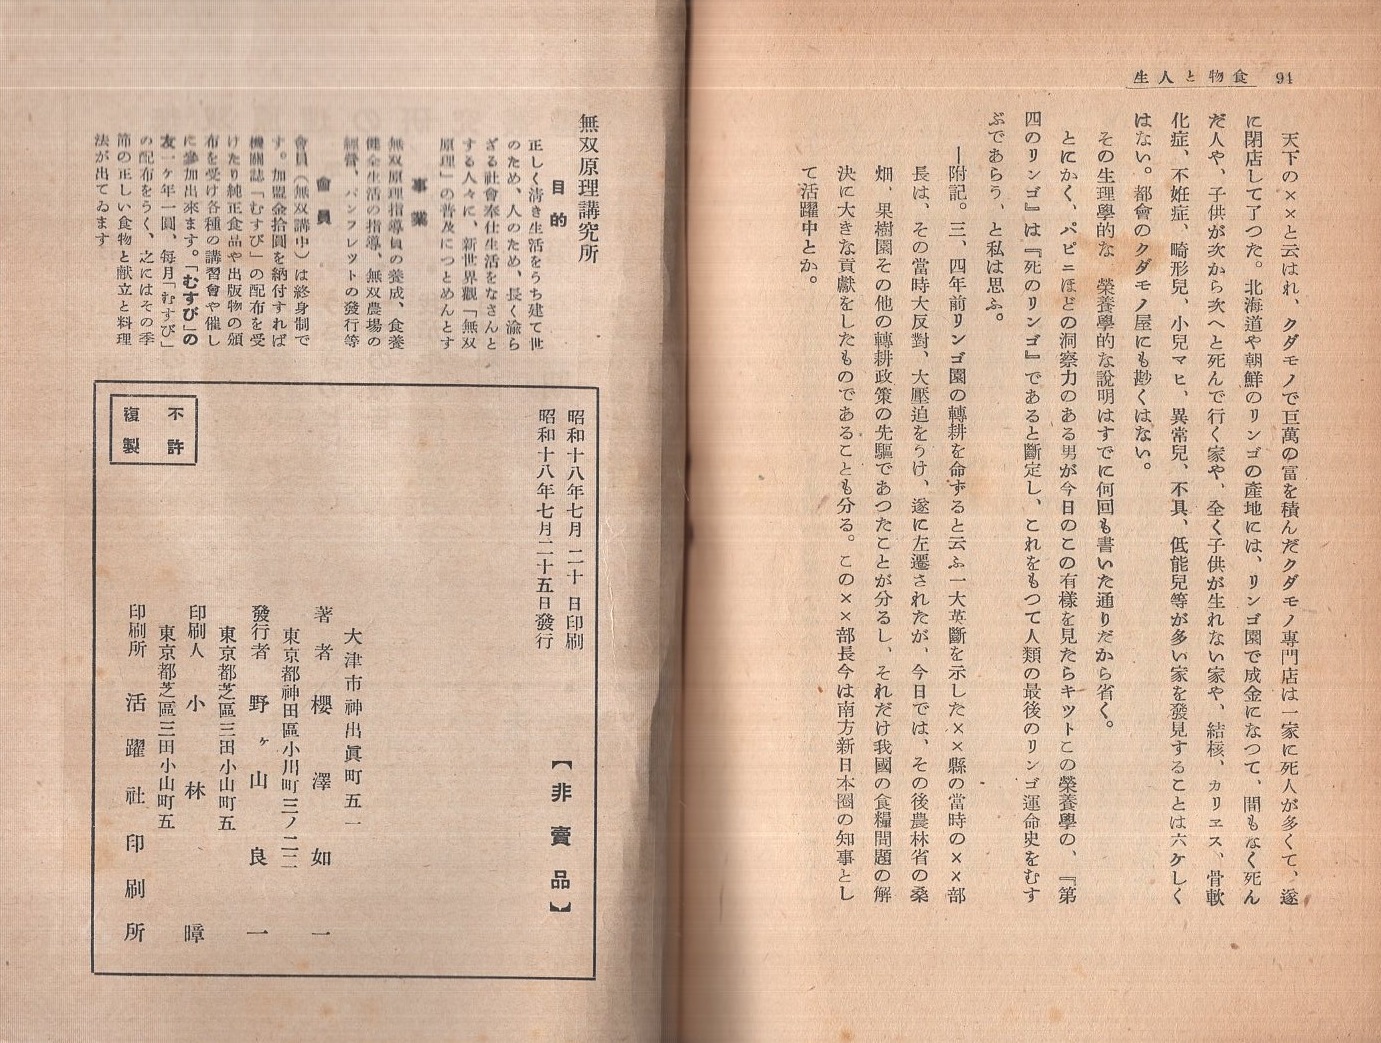 食物と人生 94
天下の××と云はれ、クダモノで巨萬の富を積んだクダモノ専門店は一家に死人が多くて、遂
に閉店して了つた。北海道や朝鮮のリンゴの産地には、リンゴ園で成金になつて、間もなく死ん
だ人や、子供が次から次へと死んで行く家や、全く子供が生れない家や、結核、カリエス、骨軟
化症、不妊症、畸形兒、小兒マヒ、異常兒、不具、低能兒等が多い家を發見することは六ケしく
はない。都會のクダモノ屋にも尠くはない。
その生理學的な 榮養學的な說明はすでに何回も書いた通りだから省く。
とにかく、パピニほどの洞察力のある男が今日のこの有樣を見たらキツトこの榮養學の、『第
四のリンゴ』は『死のリンゴ』であると斷定し、これをもつて人類の最後のリンゴ運命史をむす
ぶであらう、と私は思ふ。
―附記。三、四年前リンゴ園の轉耕を命ずると云ふ一大英斷を示した××縣の當時の××部
長は、その當時大反對、大壓迫をうけ、遂に左遷されたが、今日では、その後農林省の桑
畑、果樹園その他の轉耕政策の先驅であつたことが分るし、それだけ我國の食糧問題の解
決に大きな貢獻をしたものであることも分る。この××部長今は南方新日本圏の知事とし
て活躍中とか。
無双原理講究所
目的
正しく清き生活をうち建て世
のため、人のため、長く渝ら
ざる社會奉仕生活をなさんと
する人々に、新世界觀「無双
原理」の普及につとめんとす
事業
無双原理指導員の養成、食養
健全生活の指導、無双農場の
經營、パンフレツトの發行等
會員
會員(無双講中)は終身制で
す。加盟金拾圓を納付すれば
機關誌「むすび」の配布を受
けたり純正食品や出版物の頒
布を受け各種の講習會や催し
に參加出來ます。「むすび」の
友一ケ年一圓、每月「むすび」
の配布をうく、之にはその季
節の正しい食物と献立と料理
法が出てゐます
昭和十八年七月二十日印刷
昭和十八年七月二十五日發行
【非賣品】
大津市神出眞町五一
著者 櫻澤如一
東京都神田區小川町三ノ二二
發行者 野ヶ山良一
東京都芝區三田小山町五
印刷人 小林暲
東京都芝區三田小山町五
印刷所 活躍社印刷所
不許
複製